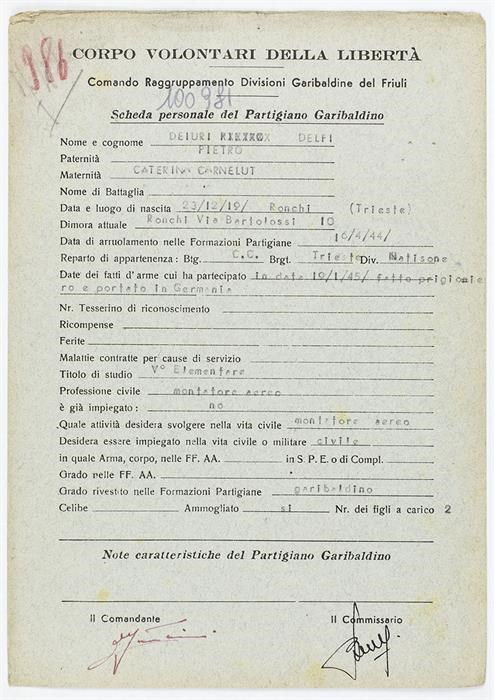 986
CORPO VOLONTARI DELLA LIBERTÀ
Comando Raggruppamento Divisioni Garibaldine del Friuli
100981
Scheda personale del Partigiano Garibaldino
Nome e cognome DEIURI DELFI
Paternità PIETRO
Maternità CATERINA CARNELUT
Nome di Battaglia
Data e luogo di nascita 23/12/19/ Ronchi (Trieste)
Dimora attuale Ronchi Via Bartolossi 10
Data di arruolamento nelle Formazioni Partigiane 16/4/44/
Reparto di appartenenza: Btg. C.C. Brgt. Trieste Div. Natisone
Date dei fatti d'arme cui ha partecipato in data 19/1/45/ fatto prigionie
ro e portato in Germania
Nr. Tesserino di riconoscimento
Ricompense
Ferite
Malattie contratte per cause di servizio
Titolo di studio V° Elementare
Professione civile montatore aereo
è già impiegato: no
Quale attività desidera svolgere nella vita civile montatore aereo
Desidera essere impiegato nella vita civile o militare civile
in quale Arma, corpo, nelle FF. AA. in S. P. E. o di Compl.
Grado nelle FF. AA.
Grado rivestito nelle Formazioni Partigiane garibaldino
Celibe Ammogliato si Nr. dei figli a carico 2
Note caratteristiche del Partigiano Garibaldino
Il Comandante Il Commissario